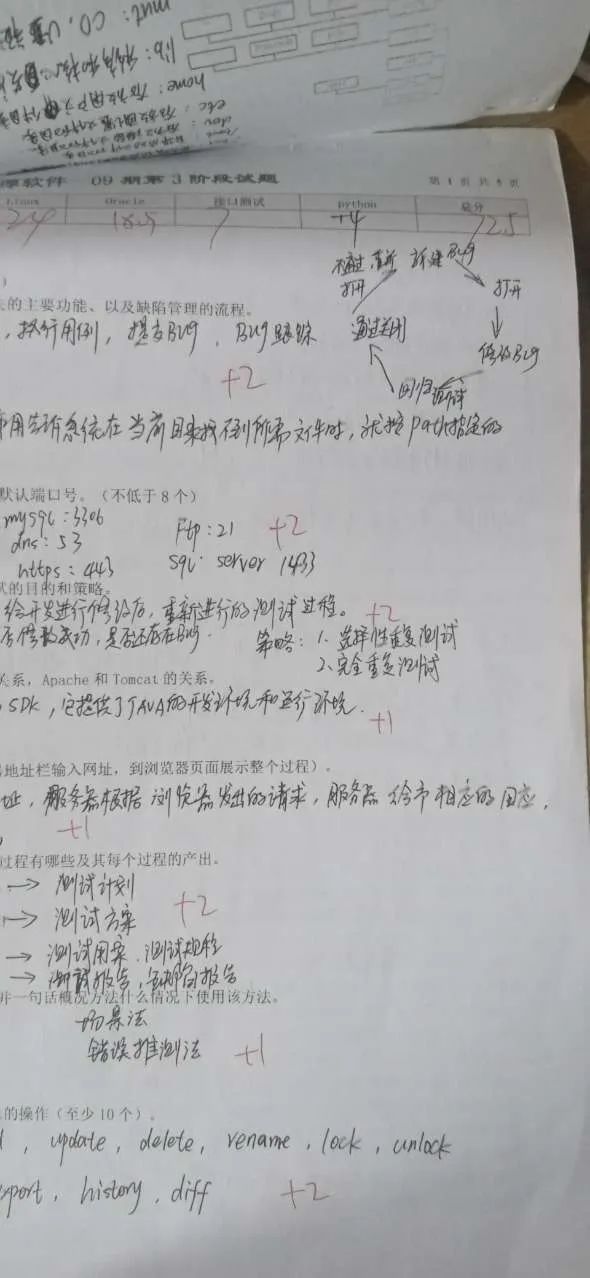 mnt: CO, U
lib:
home:
etc:
dev:
软件 09 期第 3 阶段试题 第 1 页 共 5 页
Linux Oracle 接口测试 python 总分
24 18.5 7 +4 72.5
的主要功能、以及缺陷管理的流程。
，执行用例，提交Bug，Bug跟踪
不通过 重新打开 新建Bug
打开
修改Bug
回归测试
通过关闭
+2
用告诉系统在当前目录找不到所需文件时，就按path指定的
默认端口号。（不低于 8 个）
mysql：3306 Ftp：21 +2
dns：53
https：443 sql server 1433
试的目的和策略。
给开发进行修改后，重新进行的测试过程。 +2
否修改成功，是否还存在Bug. 策略：1. 选择性重复测试
2、完全重复测试
关系，Apache 和 Tomcat 的关系。
SDK，它提供了JAVA的开发环境和运行环境. +1
地址栏输入网址，到浏览器页面展示整个过程）。
址，服务器根据浏览器发出的请求，服务器给予相应的回应，
+1
过程有哪些及其每个过程的产出。
→ 测试计划
→ 测试方案 +2
→ 测试用案、测试规程
→ 测试报告，缺陷报告
并一句话概况方法什么情况下使用该方法。
场景法
错误推测法 +1
的操作（至少 10 个）。
, update, delete, rename, lock, unlock
export, history, diff +2